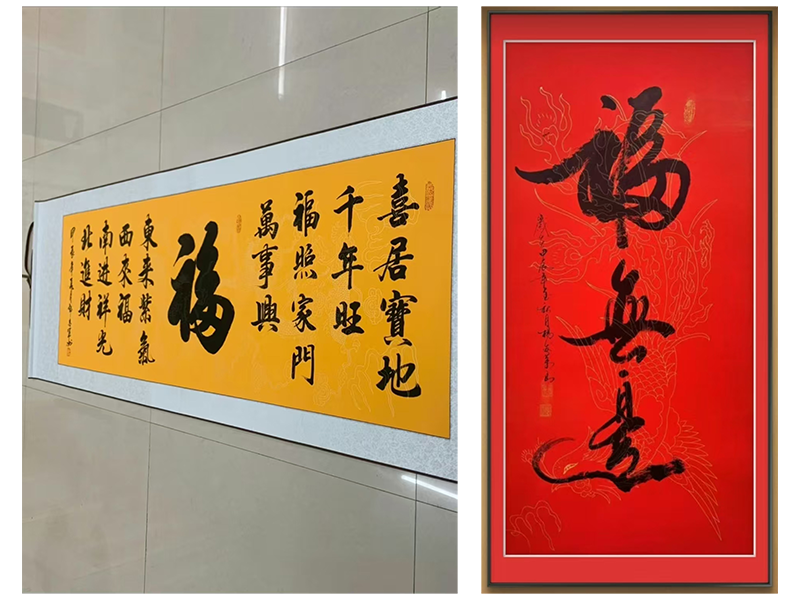 喜居寶地
千年旺
福照家門
萬事興
福
東来紫氣
西來福
南进祥光
北進財
福無邊